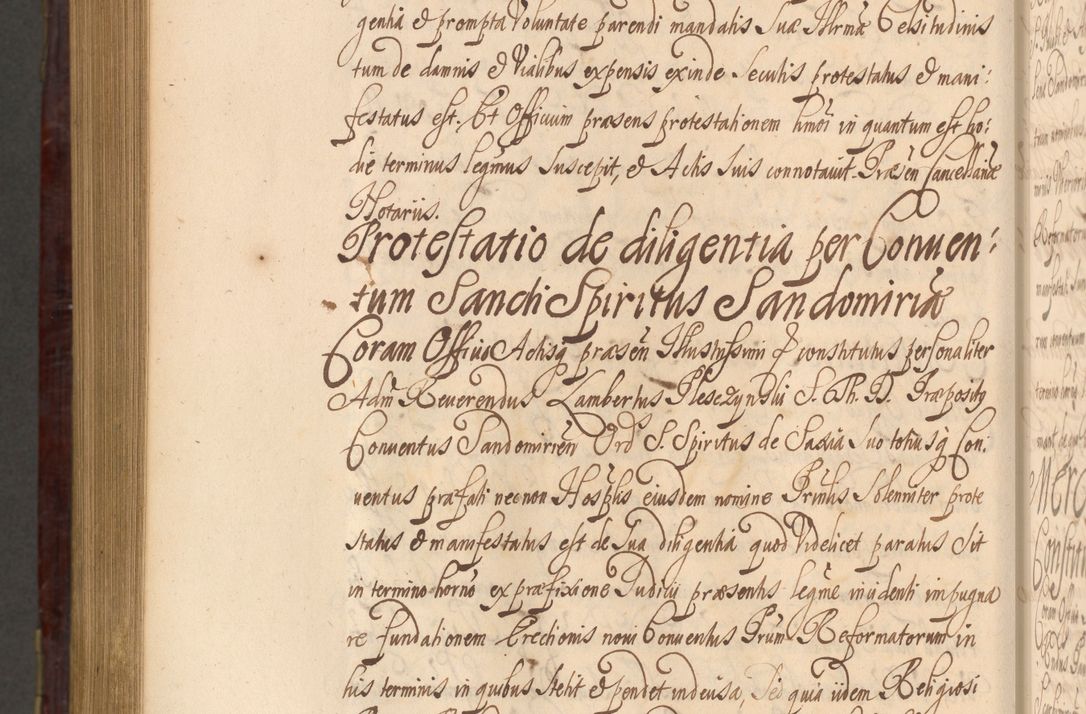 gentia & prompta Voluntate parendi mandatis Suæ Illrmæ Celsitudinis
tum de damnis & Vialibus expensis exinde Secutis protestatus & mani:
festatus est. Et Officium præsens protestationem hmoi in quantum est ho:
die terminus legmus Suscepit, & Actis Suis connotavit. Præsen Cancellariæ
Notariis.
Protestatio de diligentia per Conuen:
tum Sancti Spiritus Sandomiriæ
Coram Officio Actisq præsen Illustrissimi & constitutus personaliter
Adm Reuerendus Lambertus Plesczynski S. Th. D. Præpositq
Conuentus Sandomirien Ord S. Spiritus de Saxia Suo totiusq Con:
uentus præfati necnon Hosplis eiusdem nomine Prmlis Solenniter prote
status & manifestatus est de Sua diligentia quod Videlicet paratus Sit
in termino horno ex præfixione Iudicii præsentis legme incidenti impugna
re fundationem Erectionis noui Conuentus Prum Reformatorum in
his terminis in quibus stetit & pendet indecisa, Sed quia iidem Religiosi